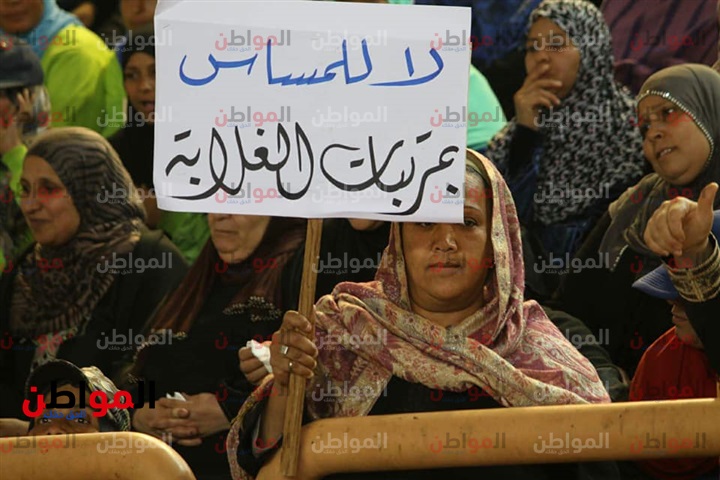 لا للمساس
بمرتبات الغلابة
المواطن